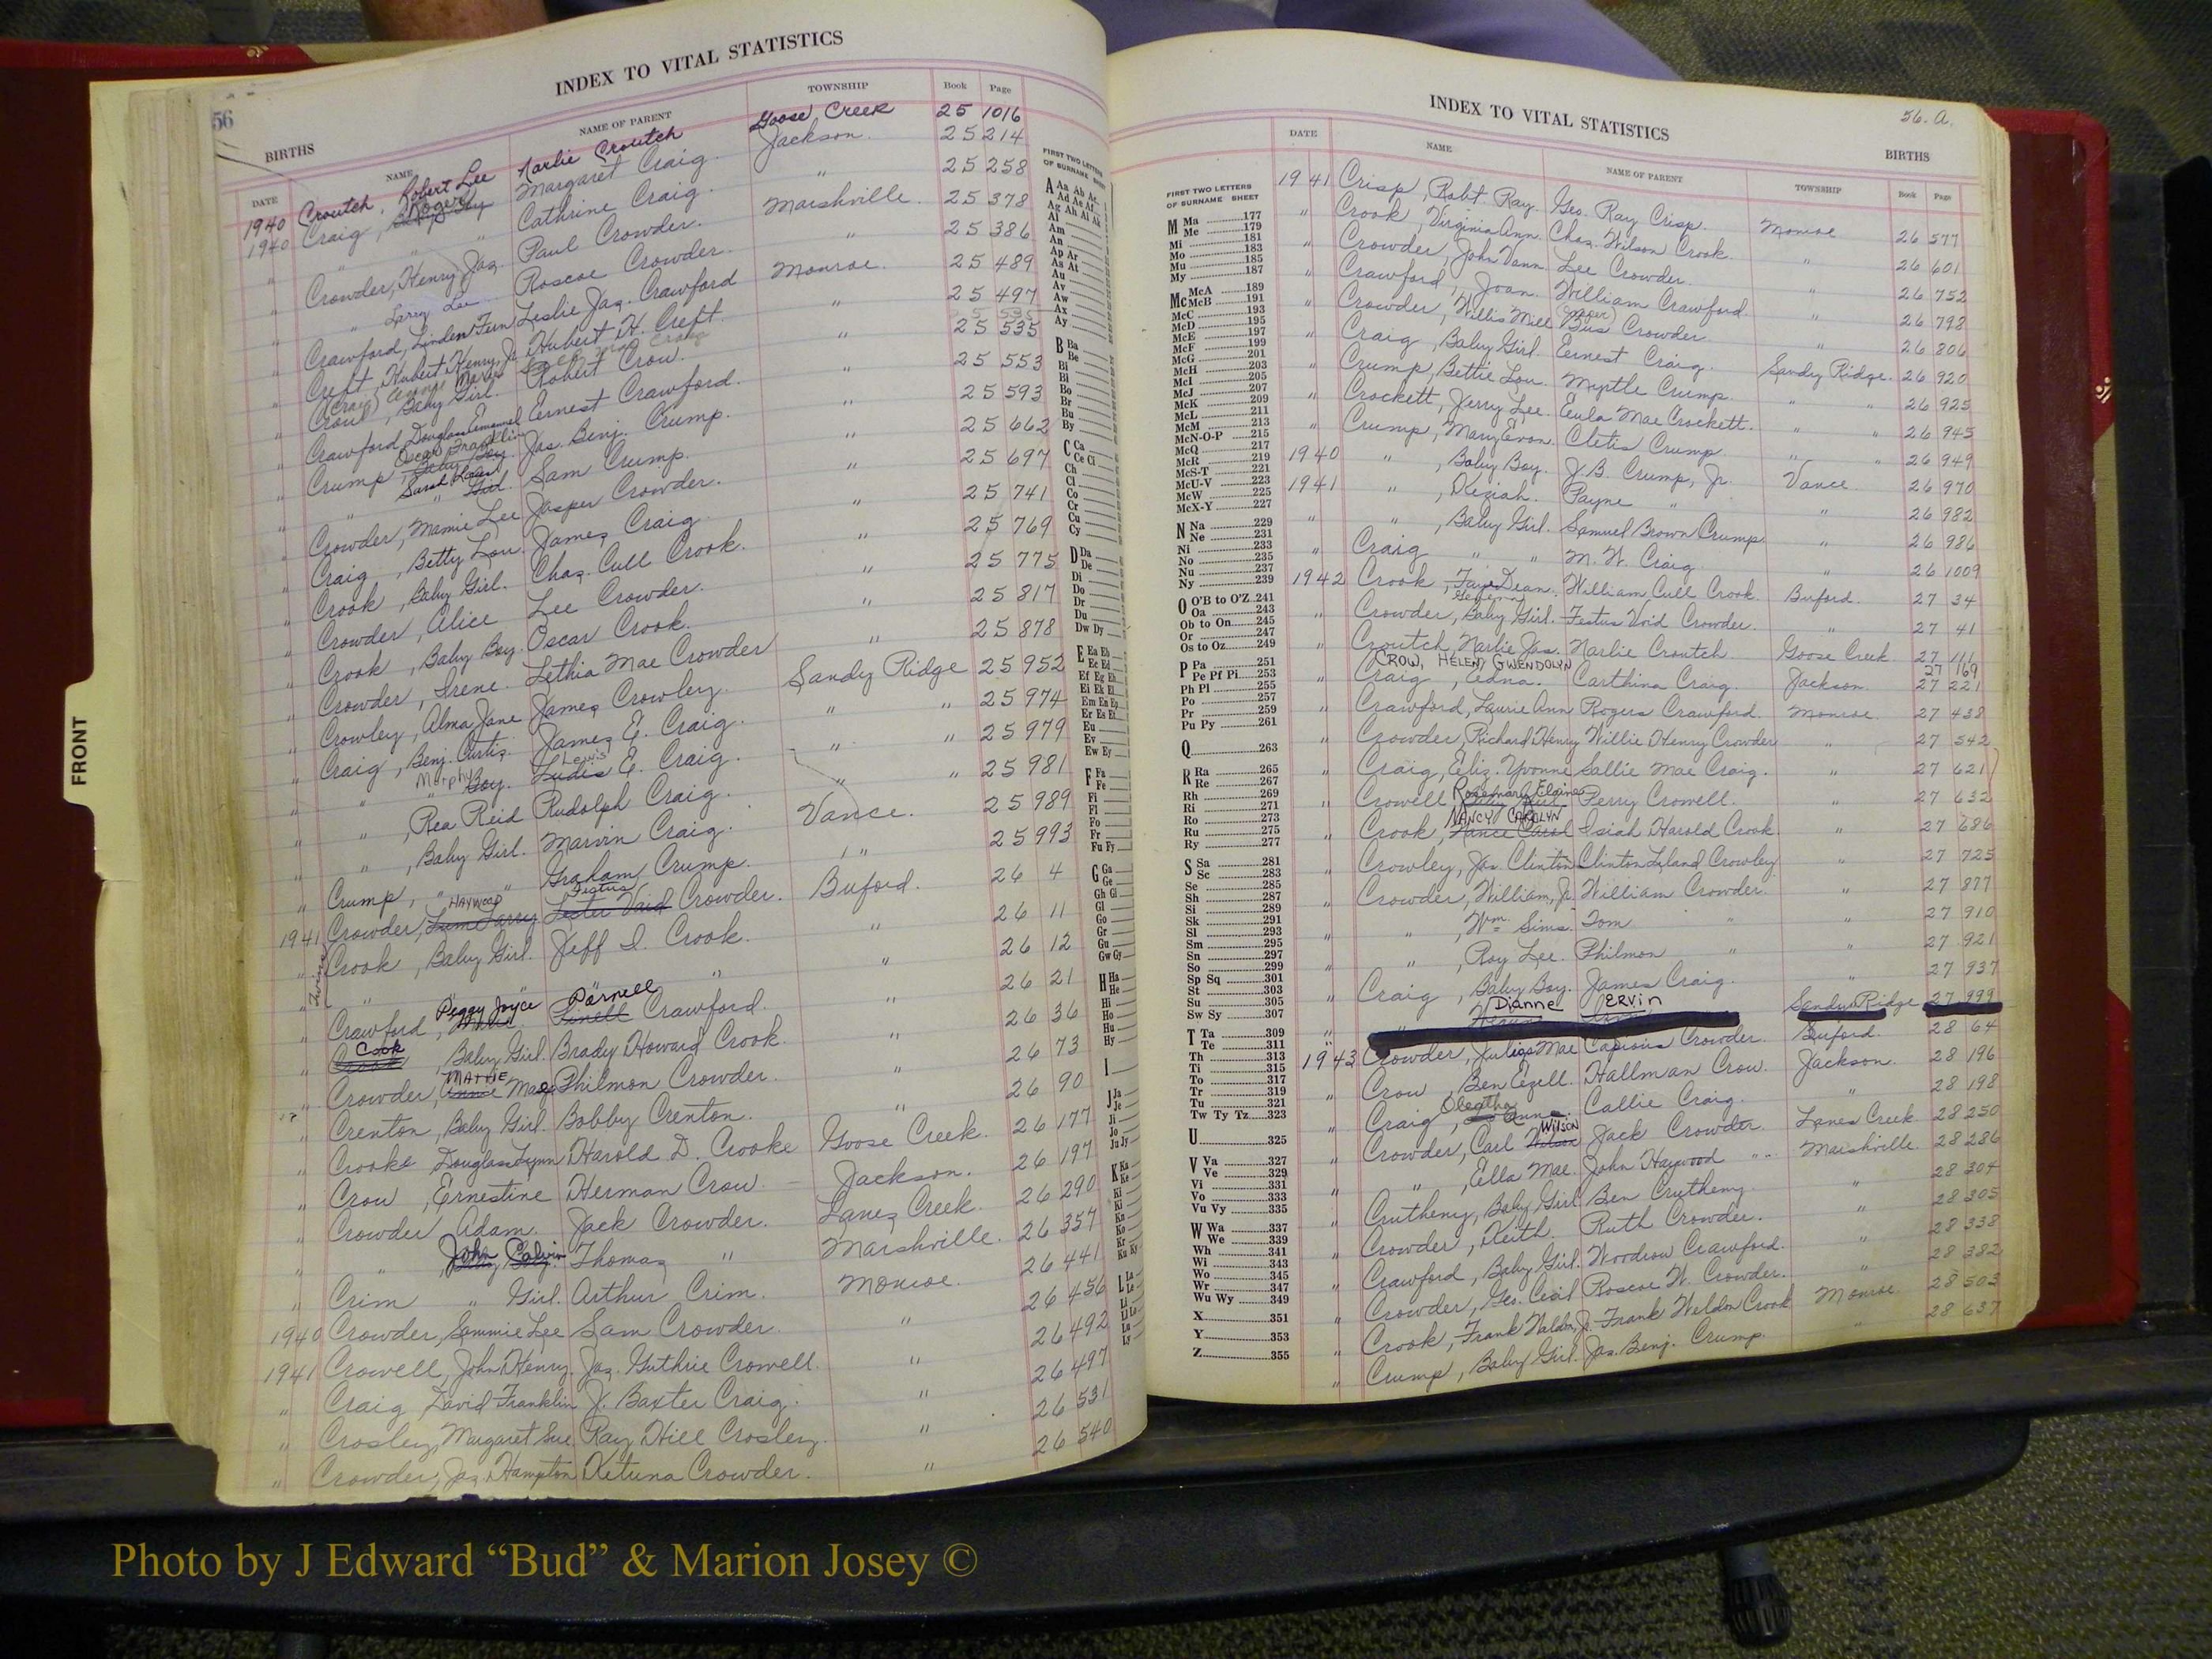 56
INDEX TO VITAL STATISTICS
BIRTHS
DATE NAME NAME OF PARENT TOWNSHIP Book Page
1940 Croutch, Robert Lee Harlie Croutch Goose Creek 25 1016
1940 Craig, Roger Margaret Craig Jackson. 25 214
" " " Cathrine Craig " 25 258
" Crowder, Henry Jas. Paul Crowder. Marshville. 25 378
" " Larry Lee Roscoe Crowder. " 25 386
" Crawford, Linden Fern Leslie Jas. Crawford Monroe. 25 489
" Creft, Hubert Henry, Jr. Hubert H. Creft. " 25 497
" Crow, Baby Girl. Robert Crow. " 25 535
" Crawford, Douglas Emanuel Ernest Crawford. " 25 553
" Crump, Oscar Franklin Baby Boy Jas. Benj. Crump. " 25 593
" " Sarah Girl. Sam Crump. " 25 662
" Crowder, Mamie Lee Jasper Crowder. " 25 697
" Craig, Betty Lou. James Craig. " 25 741
" Crook, Baby Girl. Chas. Cull Crook. " 25 769
" Crowder, Alice Lee Crowder. " 25 775
" Crook, Baby Boy. Oscar Crook. " 25 817
" Crowder, Irene. Lethia Mae Crowder " 25 878
" Crowley, Alma Jane James Crowley. Sandy Ridge 25 952
" Craig, Benj. Curtis. James E. Craig. " " 25 974
" " Murphy Boy. Lewis Ludie E. Craig. " " 25 979
" " , Rea Reid Rudolph Craig. " " 25 981
" " , Baby Girl. Marvin Craig. Vance. 25 989
" Crump, " " Graham Crump. " 25 993
1941 Crowder, HAYWOOD Larry Festus Lester Void Crowder. Buford. 26 4
" Crook, Baby Girl. Jeff D. Crook. " 26 11
Twins " " " " 26 12
" Crawford, Peggy Joyce Parnell Crawford. " 26 21
" Cook, Baby Girl. Brady Howard Crook. " 26 36
" Crowder, MATTIE Annie Mae Philmon Crowder. " 26 73
" Crenton, Baby Girl. Bobby Crenton. " 26 90
" Crooke Douglas Lynn Harold D. Crooke Goose Creek. 26 177
" Crow, Ernestine Herman Crow. Jackson. 26 197
" Crowder Adam. Jack Crowder. Lanes Creek. 26 290
" " , John Calvin Thomas " Marshville. 26 357
" Crim " Girl. Arthur Crim. Monroe. 26 441
1940 Crowder, Sammie Lee Sam Crowder. " 26 456
1941 Crowell, John Henry. Jas. Guthrie Crowell. " 26 492
" Craig David Franklin J. Baxter Craig. " 26 497
" Crosley, Margaret Sue Ray Hill Crosley. " 26 531
" Crowder, Jas. Hampton Retuna Crowder. " 26 540
FRONT
FIRST TWO LETTERS
OF SURNAME SHEET
A Aa Ab Ac
Ad Ae Af
Ag Ah Ai Ak
Al
Am
An
Ap Ar
As At
Au
Av
Aw
Ax
Ay
B Ba
Be
Bi
Bl
Bo
Br
Bu
By
C Ca
Ce Ci
Ch
Cl
Co
Cr
Cu
Cy
D Da
De
Di
Do
Dr
Du
Dw Dy
E Ea Eb
Ec Ed
Ef Eg Eh
Ei Ek El
Em En Ep
Er Es Et
Eu
Ev
Ew Ey
F Fa
Fe
Fi
Fl
Fo
Fr
Fu Fy
G Ga
Ge
Gh Gi
Gl
Go
Gr
Gu
Gw Gy
H Ha
He
Hi
Ho
Hu
Hy
I
J Ja
Je
Ji
Jo
Ju Jy
K Ka
Ke
Ki
Kl
Kn
Ko
Kr
Ku Ky
L La
Le
Li
Ll Lo
Lu
Ly
56. A.
INDEX TO VITAL STATISTICS
BIRTHS
DATE NAME NAME OF PARENT TOWNSHIP Book Page
FIRST TWO LETTERS
OF SURNAME SHEET
M Ma 177
Me 179
Mi 181
Mo 183
Mu 185
My 187
Mc McA 189
McB 191
McC 193
McD 195
McE 197
McF 199
McG 201
McH 203
McI 205
McJ 207
McK 209
McL 211
McM 213
McN-O-P 215
McQ 217
McR 219
McS-T 221
McU-V 223
McW 225
McX-Y 227
N Na 229
Ne 231
Ni 233
No 235
Nu 237
Ny 239
O O'B to O'Z 241
Oa 243
Ob to On 245
Or 247
Os to Oz 249
P Pa 251
Pe Pf Pi 253
Ph Pl 255
Po 257
Pr 259
Pu Py 261
Q 263
R Ra 265
Re 267
Rh 269
Ri 271
Ro 273
Ru 275
Ry 277
S Sa 281
Sc 283
Se 285
Sh 287
Si 289
Sk 291
Sl 293
Sm 295
Sn 297
So 299
Sp Sq 301
St 303
Su 305
Sw Sy 307
T Ta 309
Te 311
Th 313
Ti 315
To 317
Tr 319
Tu 321
Tw Ty Tz 323
U 325
V Va 327
Ve 329
Vi 331
Vo 333
Vu Vy 335
W Wa 337
We 339
Wh 341
Wi 343
Wo 345
Wr 347
Wu Wy 349
X 351
Y 353
Z 355
1941 Crisp, Robt. Ray. Geo. Ray Crisp. Monroe 26 577
" Crook, Virginia Ann. Chas. Wilson Crook. " 26 601
" Crowder, John Vann. Lee Crowder. " 26 752
" Crawford, Joan. William Crawford. " 26 798
" Crowder, Willis Mill Bus (Jasper) Crowder. " 26 806
" Craig, Baby Girl. Earnest Craig. Sandy Ridge. 26 920
" Crump, Bettie Lou. Myrtle Crump. " " 26 925
" Crockett, Jerry Lee. Eula Mae Crockett. " " 26 945
" Crump, Mary Evon. Cletis Crump. " " 26 949
1940 " , Baby Boy. J.B. Crump, Jr. Vance 26 970
1941 " , Keziah. Payne " " 26 982
" " , Baby Girl. Samuel Brown Crump " 26 986
" Craig " " M. W. Craig " 26 1009
1942 Crook, Faye Dean. William Cull Crook. Buford. 27 34
" Crowder, Baby Girl. Festus Void Crowder. " 27 41
" Croutch, Harlie Jas. Harlie Croutch Goose Creek 27 111
CROW, HELEN GWENDOLYN 27 169
" Craig, Edna. Carthina Craig. Jackson. 27 221
" Crawford, Laurie Ann Rogers Crawford. Monroe. 27 438
" Crowder, Richard Henry Willie Henry Crowder " 27 542
" Craig, Eliz. Yvonne Sallie Mae Craig. " 27 621
" Crowell, Rosemary Elaine Perry Crowell. " 27 632
" Crook, NANCY CAROLYN Nance Carol Isiah Harold Crook. " 27 686
" Crowley, Jas. Clinton Clinton Leland Crowley. " 27 725
" Crowder, William, Jr. William Crowder. " 27 877
" " , Wm. Sims. Tom " " 27 910
" " , Roy Lee. Philmon " " 27 921
" Craig, Baby Boy. James Craig. " 27 937
" " Dianne ERVIN Sandy Ridge 27 999
1943 Crowder, Julia Mae Crowder. Buford. 28 64
" Crow, Ben Ezell. Hallman Crow. Jackson. 28 196
" Craig, Oleatha Callie Craig. " 28 198
" Crowder, Carl Wilson Jack Crowder. Lanes Creek 28 250
" " , Ella Mae. John Haywood " Marshville. 28 286
" Crutheny, Baby Girl Ben Crutheny. " 28 304
" Crowder, Keith. Ruth Crowder. " 28 305
" Crawford, Baby Girl. Woodrow Crawford. " 28 338
" Crowder, Geo. Cecil Roscoe W. Crowder. " 28 382
" Crook, Frank Weldon, Jr. Frank Weldon Crook Monroe. 28 503
" Crump, Baby Girl. Jas. Benj. Crump. " 28 637
Photo by J Edward “Bud” & Marion Josey ©